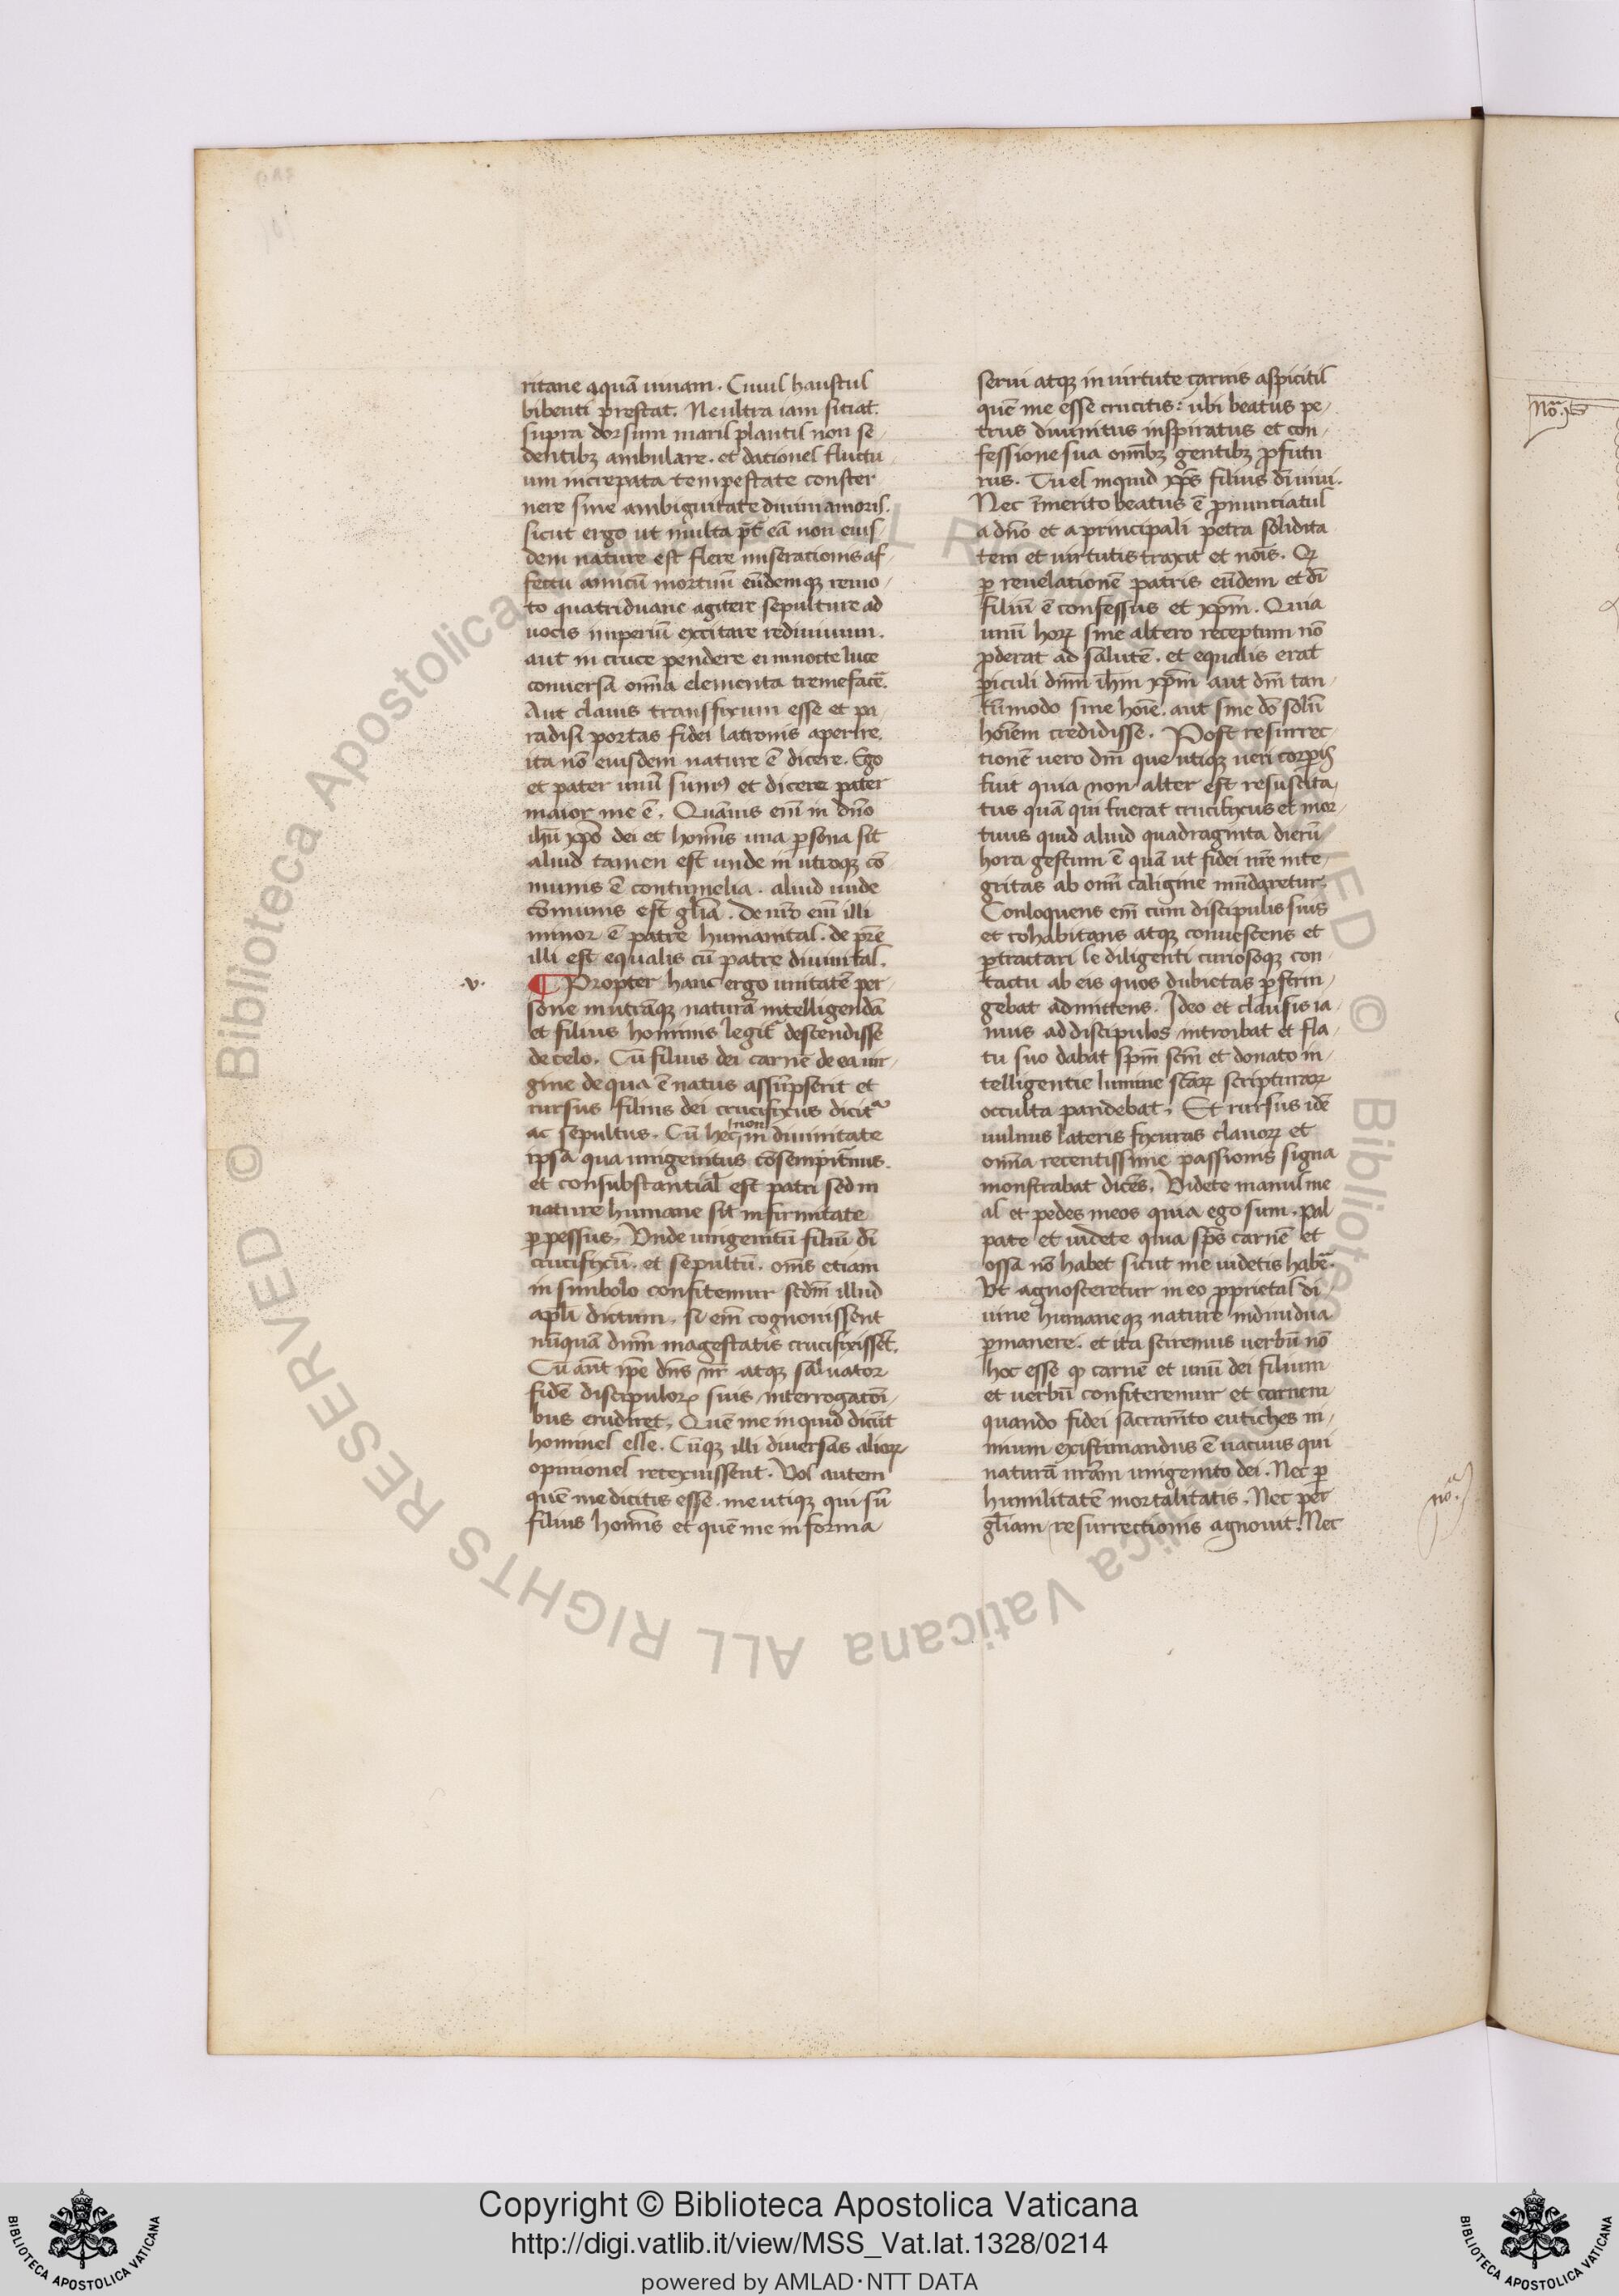 ritane aquā uiuam. Cuiuſ hauſtuſ
bibenti preſtat. Ne ultra iam ſitiat.
ſupra dorſum mariſ plantiſ non ſe-
dentibꝫ ambulare. et dationeſ fluctu
um increpata tempeſtate conſter
nere ſine ambiguitate diuini amoris.
ſicut ergo ut multa p̄t eā non eiuſ
dem nature eſt flere miſerationis af-
fectu amicū mortuū eūdemqꝫ remo-
to quatriduane agitere ſepulture ad
uocis imperiū excitare rediuiuum.
aut in cruce pendere et in nocte luce
conuerſa om̄a elementa tremefacē.
Aut clauis transfixum eſſe et pa-
radiſi portas fidei latronis aperire.
ita nō eiuſdem nature ē dicere. Ego
et pater unū ſumꝰ et dicere pater
maior me ē. Quāuis em̄ in dn̄o
ih̄u xp̄o dei et homīs una perſona ſit
aliud tamen eſt unde in utroqꝫ cō
munis ē contumelia. aliud unde
cōmunis eſt gl̄ia. de nr̄o em̄ illi
minor ē patre humanitaſ. de pr̄e
illi eſt equalis cū patre diuinitaſ.
.v. ¶ Propter hanc ergo unitatē per-
ſone in utrāqꝫ naturā intelligendā
et filius hominis legit᷑ deſcendiſſe
de celo. Cū filius dei carnē de ea uir-
gine de qua ē natus aſſūpſerit et
rurſus filius dei crucifixus dicit᷑
ac ſepultus. Cū hec non in diuinitate
ipſa qua unigenitus cōſempit̄nus.
et conſubſtantial̄ eſt patri ſed in
nature humane ſit infirmitate
ꝑpeſſus. Vnde unigenitū filiū dī
crucifixū. et ſepultū. om̄s etiam
in ſimbolo confitemur ſcd̄m illud
apl̄i dictum. ſi em̄ cognouiſſent
nūquā dn̄m mageſtatis crucifixiſſēt.
Cū aūt ip̄e dn̄s nr̄ atqꝫ ſaluator
fidē diſcipuloꝝ ſuis interrogatōi-
bus erudiret. Quē me inquid dicūt
homineſ eſſe. Cūqꝫ illi diuerſas alioꝝ
opinioneſ retexuiſſent. Voſ autem
quē me dicitis eſſe. me utiqꝫ qui ſū
filius homīs et quē me in forma
ſerui atqꝫ in uirtute carnis aſpicitiſ
quē me eſſe crucitis: ubi beatus pe-
trus diuinitus inſpiratus et con-
feſſione ſua om̄ibꝫ gentibꝫ ꝓfutu
rus. Tu eſ inquid xp̄s filius dī uiui.
Nec īmerito beatus ē ꝓnunciatuſ
a dn̄o et a principali petra ſolidita
tem et uirtutis traxit et nōis. Qꝛ
ꝑ reuelationē patris eūdem et dī
filiū ē confeſſus et xp̄m. Quia
unū hoꝝ ſine altero receptum nō
ꝓderat ad ſalutē. et equalis erat
ꝑiculi dn̄m ih̄m xp̄m aut dm̄ tan-
tūmodo ſine hoīe. aut ſine dō ſolū
hoīem credidiſſe. Poſt reſurrec-
tionē uero dn̄i que utiqꝫ ueri corꝑis
fuit quia non alter eſt reſuſcita-
tus quā qui fuerat crucifixus et mor-
tuus quid aliud quadraginta dierū
hora geſtum ē quā ut fidei nr̄e inte-
gritas ab om̄i caligine mūdaretur.
Conloquens em̄ cum diſcipulis ſuis
et cohabitans atqꝫ conueſcens et
ꝑtractari ſe diligenti curioſoqꝫ con-
tactu ab eis quos dubietas ꝑſtrin-
gebat admittens. Ideo et clauſis ia-
nuis ad diſcipulos introibat et fla-
tu ſuo dabat ſpm̄ ſcm̄ et donato in-
telligentie lumine ſcāꝝ ſcripturaꝝ
occulta pandebat. Et rurſus idē
uulnus lateris fixuras clauoꝝ et
om̄a recentiſſime paſſionis ſigna
monſtrabat dicēs. Videte manuſ me
aſ et pedes meos quia ego ſum. pal
pate et uidete quia ſp̄s carnē et
oſſa nō habet ſicut me uidetis habē.
Vt agnoſceretur in eo ꝓprietaſ di-
uine humaneqꝫ nature indiuidua
ꝑmanere. et ita ſciremus uerbū nō
hoc eſſe qͥ carnē et unū dei filium
et uerbū confiteremur et carnem
quando fidei ſacramēto eutiches ni-
mium exiſtimandus ē uacuus qui
naturā nr̄am unigenito dei. Nec ꝑ
humilitatē mortalitatis. Nec per
gl̄iam reſurrectionis agnouit. Nec
no.ᵃ
Copyright © Biblioteca Apostolica Vaticana
http://digi.vatlib.it/view/MSS_Vat.lat.1328/0214
powered by AMLAD·NTT DATA
BIBLIOTECA APOSTOLICA VATICANA
BIBLIOTECA APOSTOLICA VATICANA
© Biblioteca Apostolica Vaticana ALL RIGHTS RESERVED